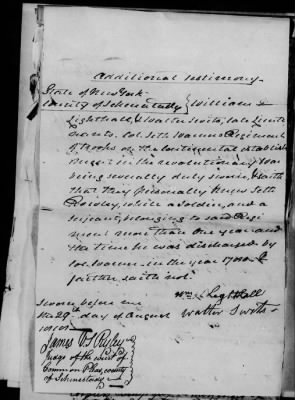 additional testimony
State of New York
County of Schenectady } William
Lighthall, & Walter Swits, late Lieute
nants, Col. Seth Warners Regiment
of troops on the Continental establish
ment in the revolutionary War
being severally duly sworn, saith
that they personally knew Seth
while a soldier, and a
sergeant, belonging to said Regi
ment more than one year and
the time he was discharged by
Col. Warner in the year &
further saith not.
Wm Lighthall
Sworn before me
the 29th day of August Walter Swits
1818
James
Judge of the Court of
Common Pleas, county
of Schenectady